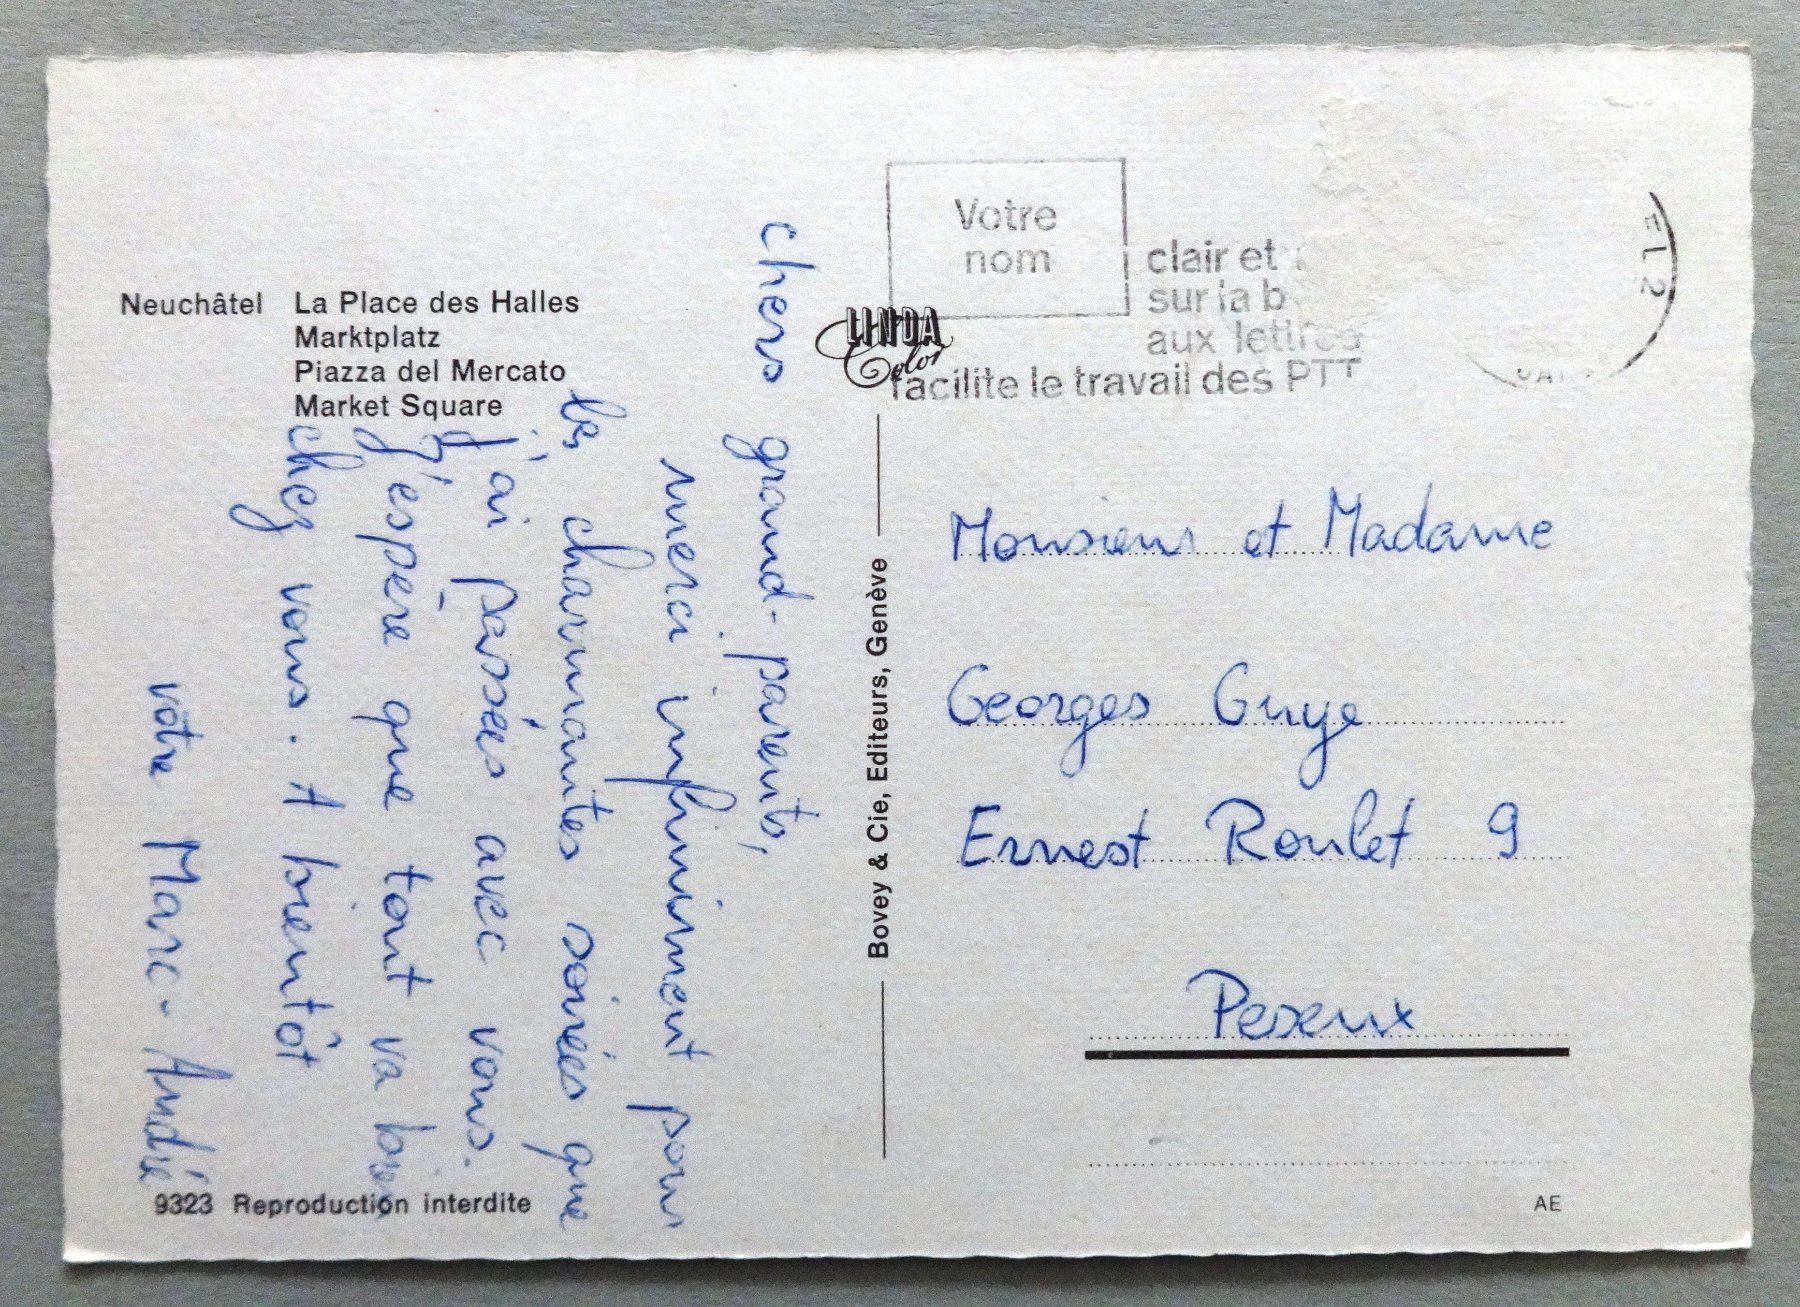 Neuchâtel La Place des Halles
Marktplatz
Piazza del Mercato
Market Square
chers grand-parents,
merci infiniment pour
les charmantes soirées que
j'ai passées avec vous.
J'espère que tout va bien
chez vous. A bientôt
votre Marc-André
9323 Reproduction interdite
LINDA
Color
Bovey & Cie, Editeurs, Genève
Votre
nom
clair et
sur la b
aux lettres
facilite le travail des PTT
EL 2
Monsieur et Madame
Georges Guye
Ernest Roulet 9
Peseux
AE